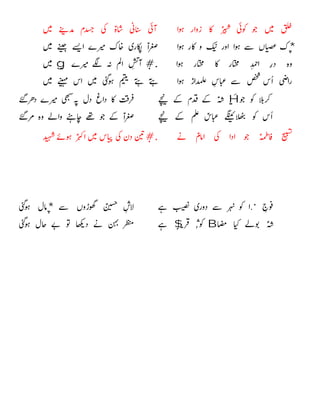 خلق میں جو کوئی شہؑ کا زوار ہوا
آئی سنانی شاہؑ کی جسدم مدینے میں
ک عصیاں سے ہوا اور نیک و کار ہوا
صغراؑ پکاری خاک میرے ایسے جینے میں
وہ در احمدؐ مختار کا مختار ہوا
آتش الم نہ لگے میرے میں
راضی اُس شخص سے عباسؑ علمدار ہوا
بنتے بنتے یتیم ہوگئی میں اس مہینے میں
کربلا کو جو شہؑ کے قدم کے نیچے
فرقت کا داغ دل پہ سبھی میرے دھرگئے
اُس کو بٹھلائینگے عباسؑ علم کے نیچے
صغراؑ کے جو تھے چاہنے والے وہ مرگئے
تسبیح فاطمہؑ جو ادا کی امامؑ نے
تین دن کی پیاس میں اکبرؑ ہوئے شہید
فوج کو نہر سے دوری نصیب ہے
لاشِ حسینؑ گھوڑوں سے مال ہوگئی
شہؑ بولے کیا کو ہے
منظر بہن نے دیکھا تو بے حال ہوگئی